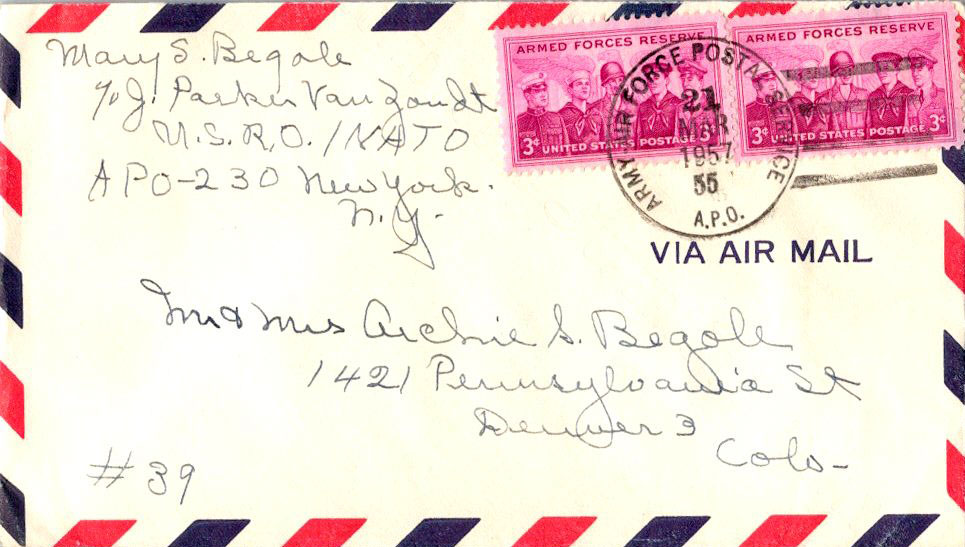 Mary S. Begole
c/o J. Parker Van Zandt
U.S.R.O. / NATO
APO-230 New York.
N.Y.
ARMED FORCES RESERVE
3¢ UNITED STATES POSTAGE 3¢
ARMED FORCES RESERVE
3¢ UNITED STATES POSTAGE 3¢
ARMY AIR FORCE POSTAL SERVICE
21
MAR
1957
55
A.P.O.
VIA AIR MAIL
Mr & Mrs Archie S. Begole
1421 Pennsylvania St
Denver 3
Colo-
#39